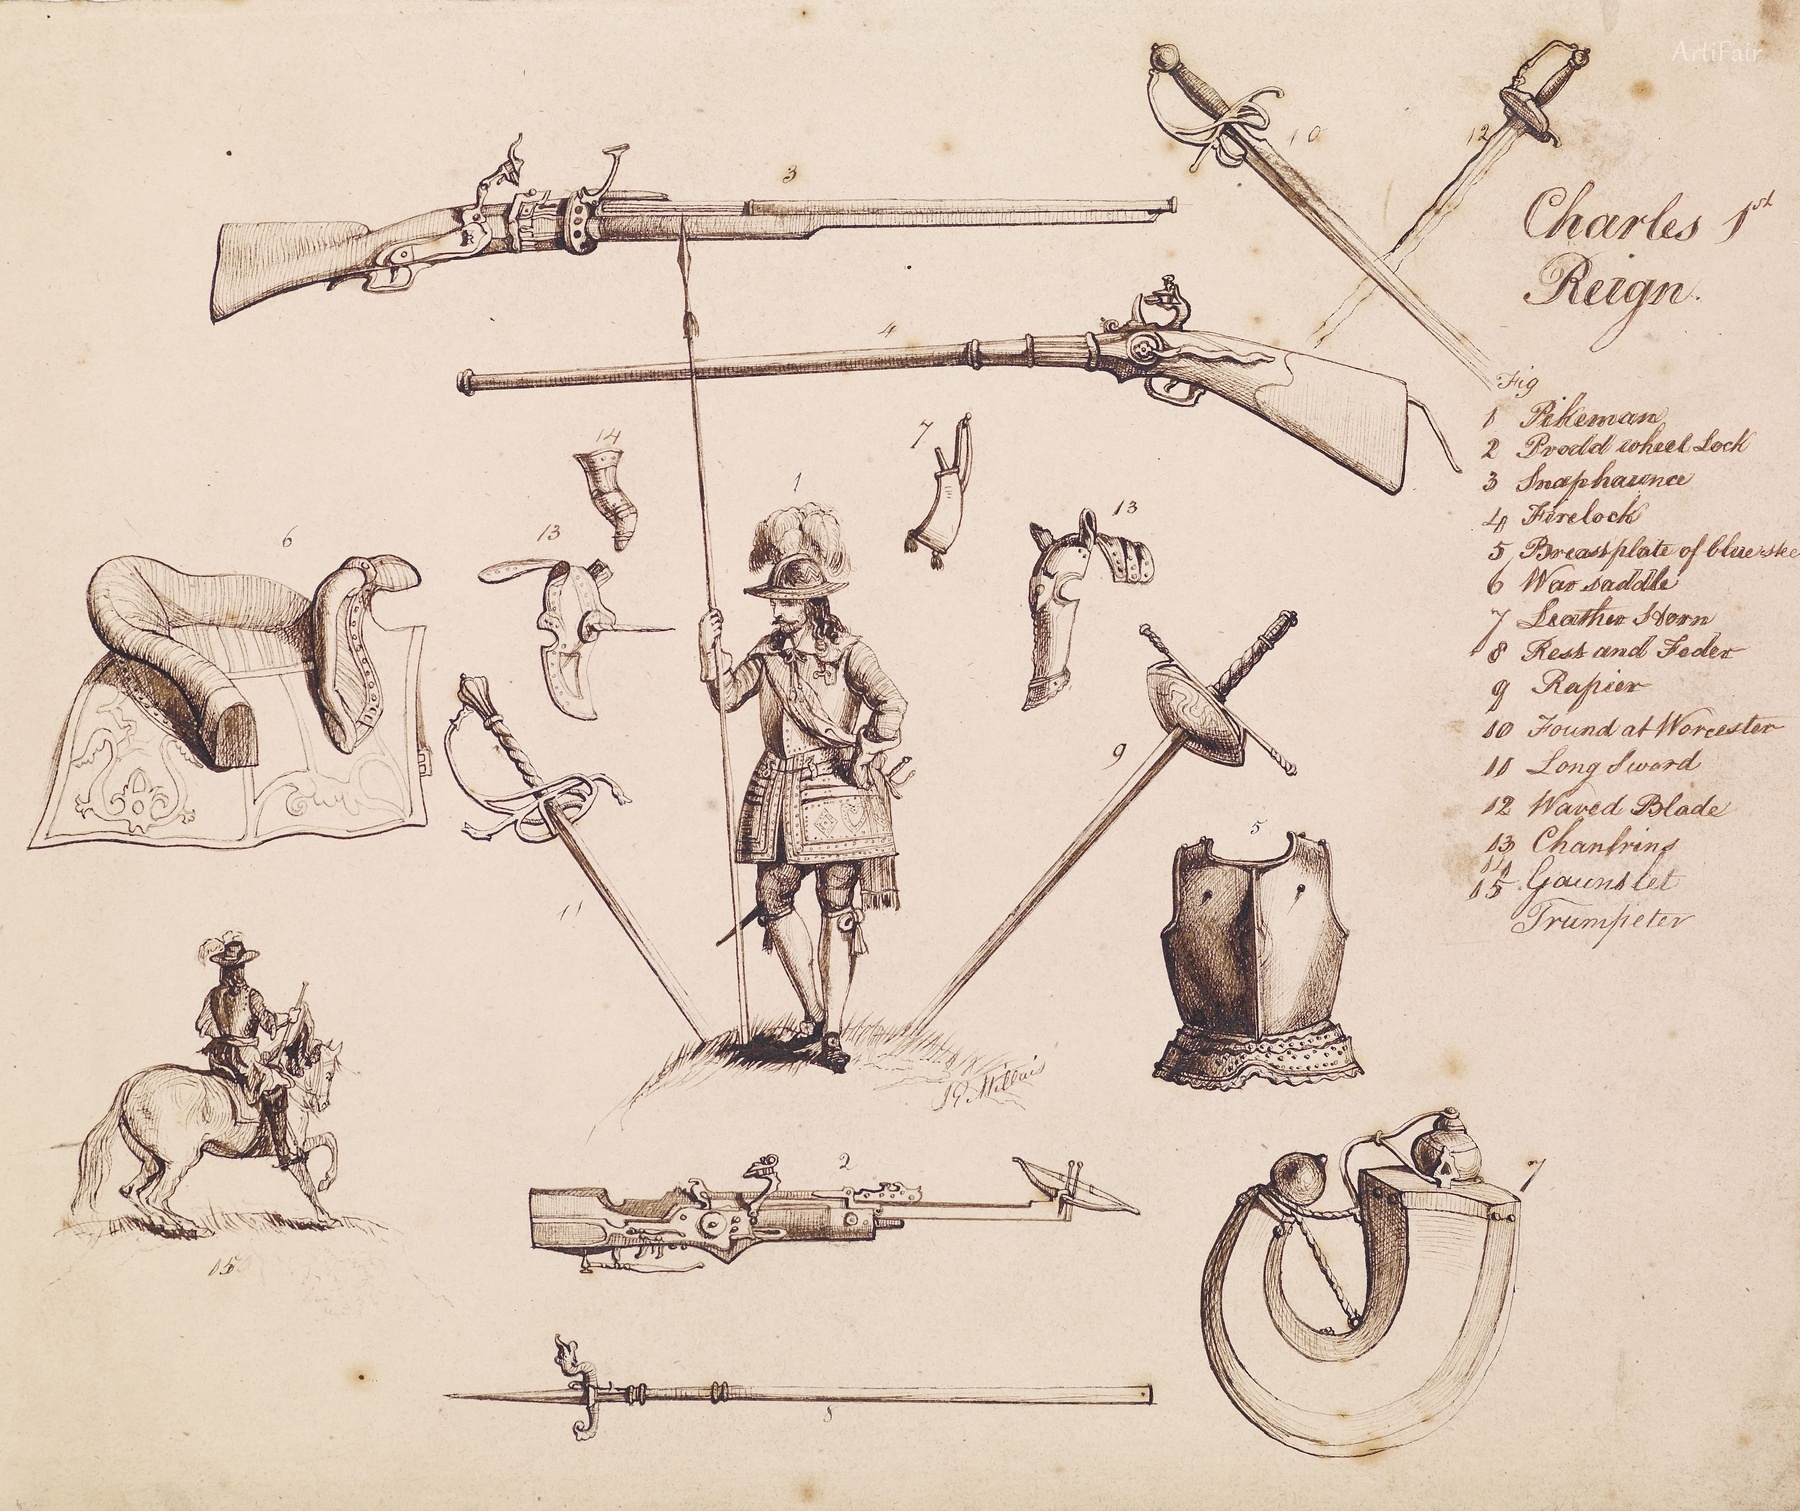 ArtiFair
10
12
3
Charles 1st
Reign.
4
Fig
1 Pikeman
2 Prodd wheel Lock
3 Snaphaunce
4 Firelock
5 Breastplate of blue stee
6 War saddle
7 Leather Horn
8 Rest and Feder
9 Rapier
10 Found at Worcester
11 Long Sword
12 Waved Blade
13 Chanfrins
14
15 Gauntlet
Trumpeter
14
7
1
13
13
6
9
5
11
J E Millais
2
7
15
8